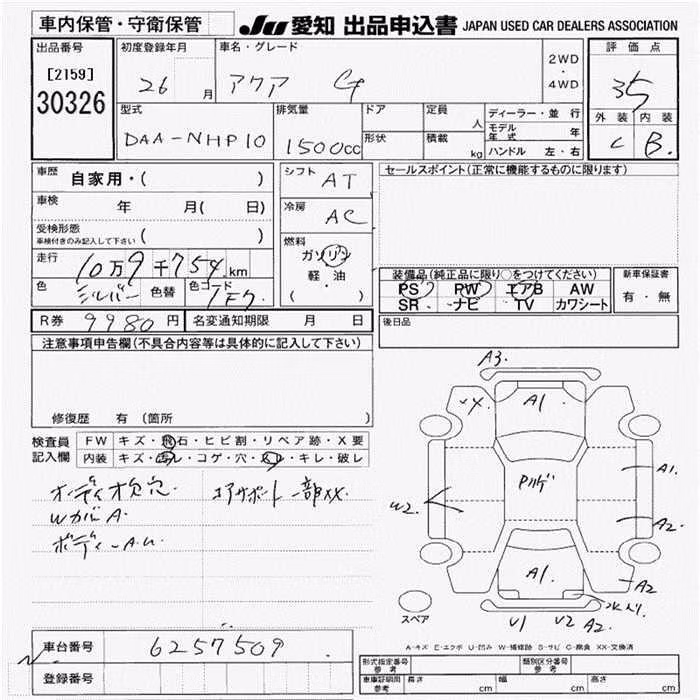 車内保管・守衛保管
JU 愛知 出品申込書 JAPAN USED CAR DEALERS ASSOCIATION
出品番号
[2159]
30326
初度登録年月
26 月
車名・グレード
アクア G
2WD
・
4WD
評価点
3.5
外装 内装
C B
型式
DAA-NHP10
排気量
1500cc
ドア
形状
定員 人
積載 kg
ディーラー・並行
モデル年式 年
ハンドル 左・右
車歴 自家用・( )
車検 年 月( 日)
受検形態
車検付きのみ記入して下さい ( )
走行
10万9千754km
色 シルバー 色替 色コード 1F7
シフト AT
冷房 AC
燃料
ガソリン
軽・油
( ・ )
セールスポイント(正常に機能するものに限ります)
装備品(純正品に限り○をつけてください)
PS PW エアB AW
SR ナビ TV カワシート
新車保証書
有・無
R券 9980円 名変通知期限 月 日
後日品
注意事項申告欄(不具合内容等は具体的に記入して下さい)
修復歴 有 (箇所 )
検査員
記入欄
FW キズ・飛石・ヒビ割・リペア跡・X要
内装 キズ・ヨゴレ・コゲ・穴・スレ・キレ・破レ
オーディオ欠穴. コアサポート一部XX.
WカバーA.
ボディーA.U.
A3.
A1
A1.
W2.
A2.
A1.
A2
V1 V2 A2.
スペア
A-キズ E-エクボ U-凹み W-補修跡 S-サビ C-腐食 XX-交換済
車台番号 6257509
登録番号
型式指定番号
参考
類別区分番号
参考
車庫証明用
参考
長さ cm 幅 cm 高さ cm